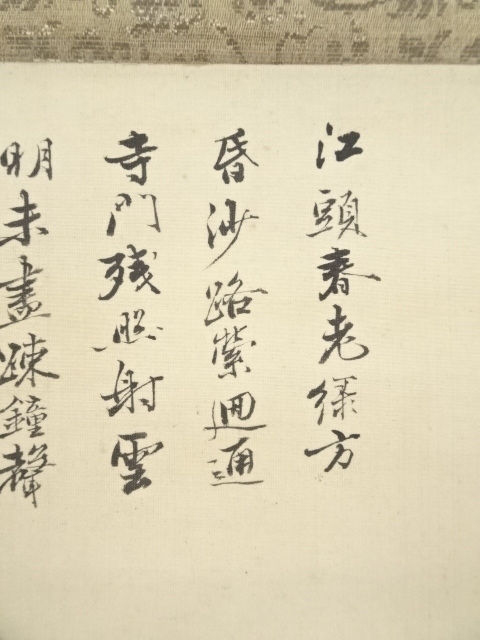 江頭春老綠方
昏沙路縈迴通
寺門残照射雲
明未盡疎鐘聲